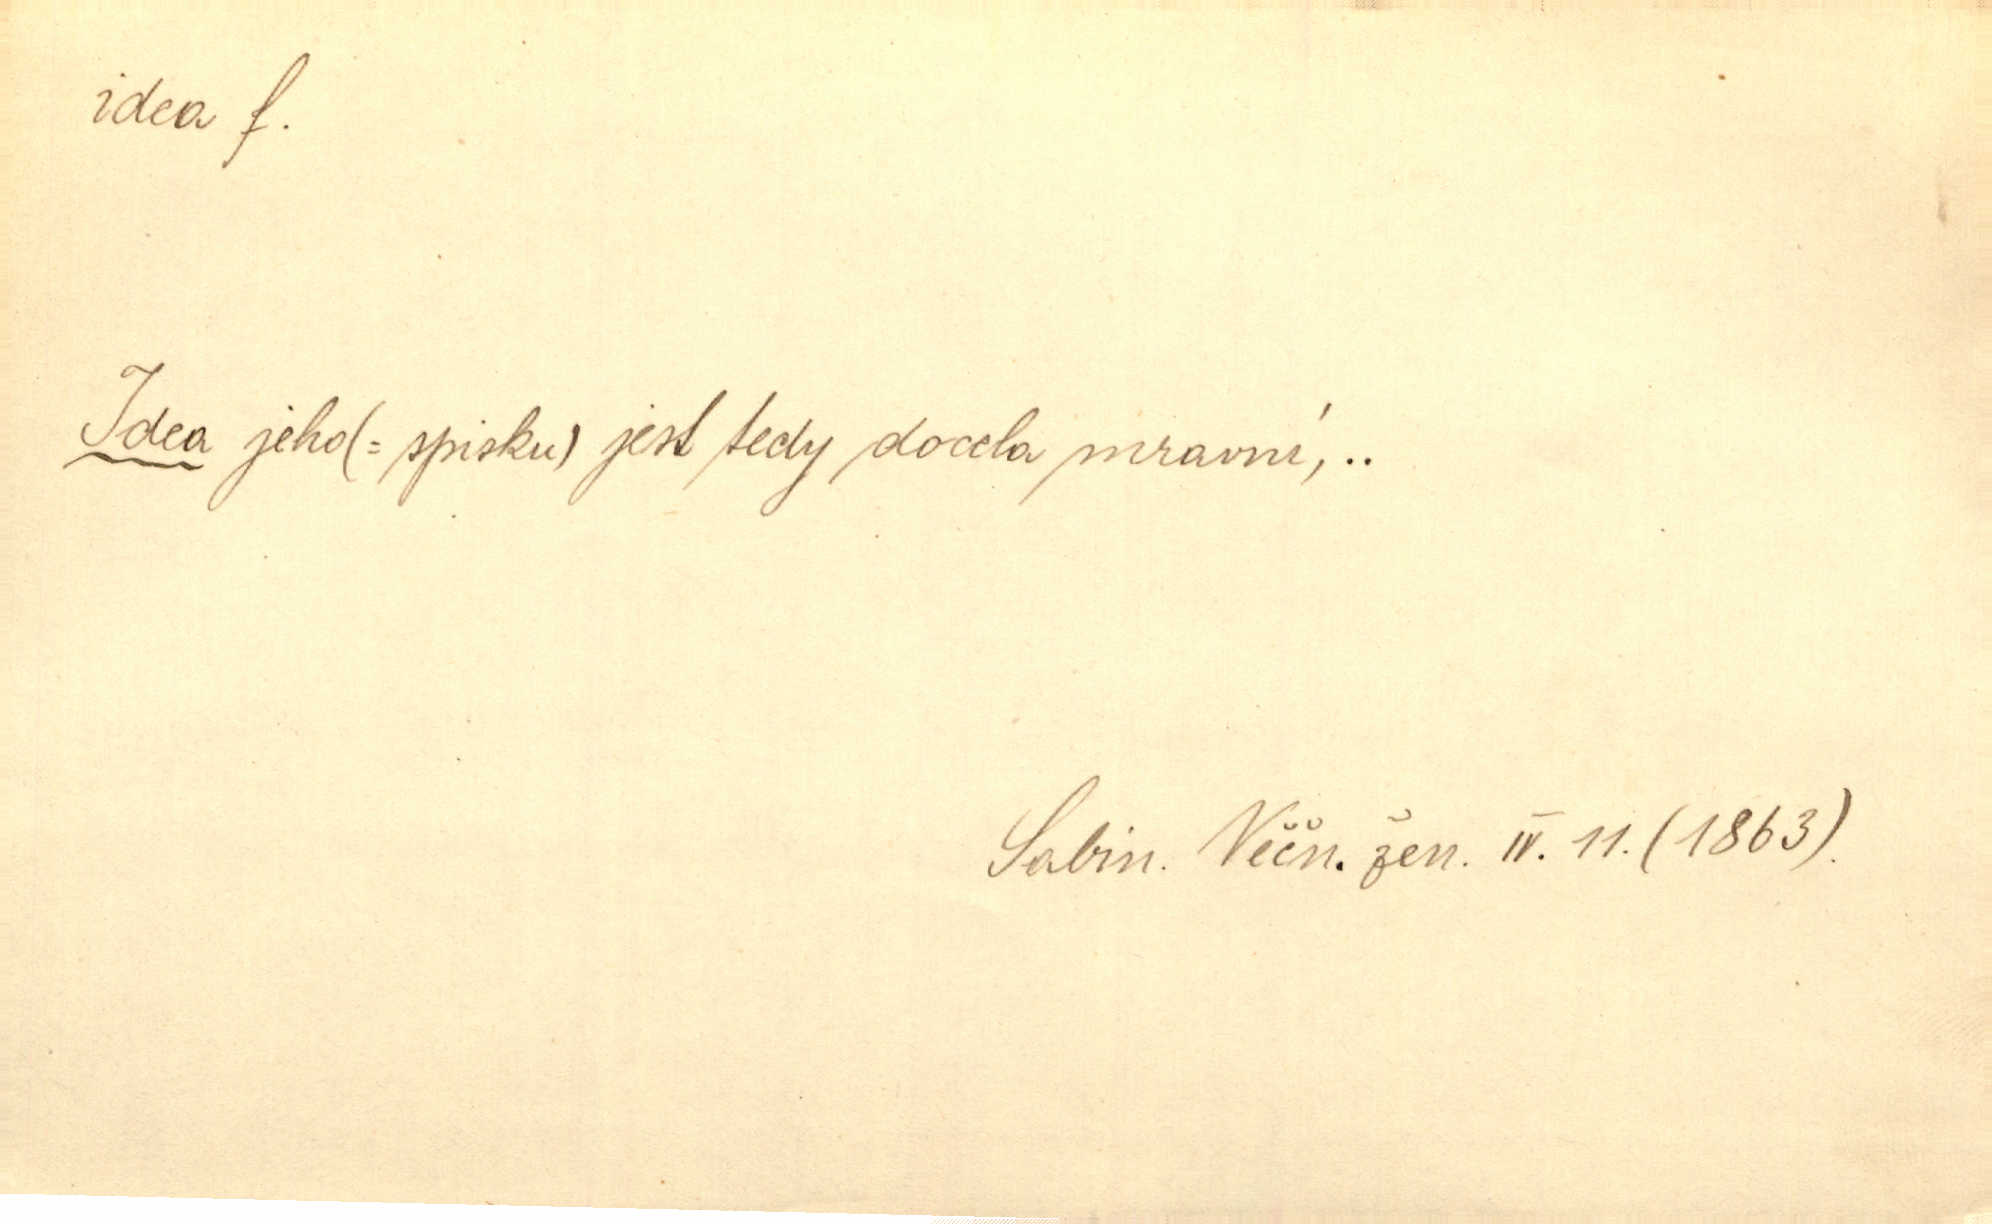 idea f.
Idea jeho (= spisku) jest tedy docela mravní, ..
Sabin. Věčn. žen. IV. 11. (1863).